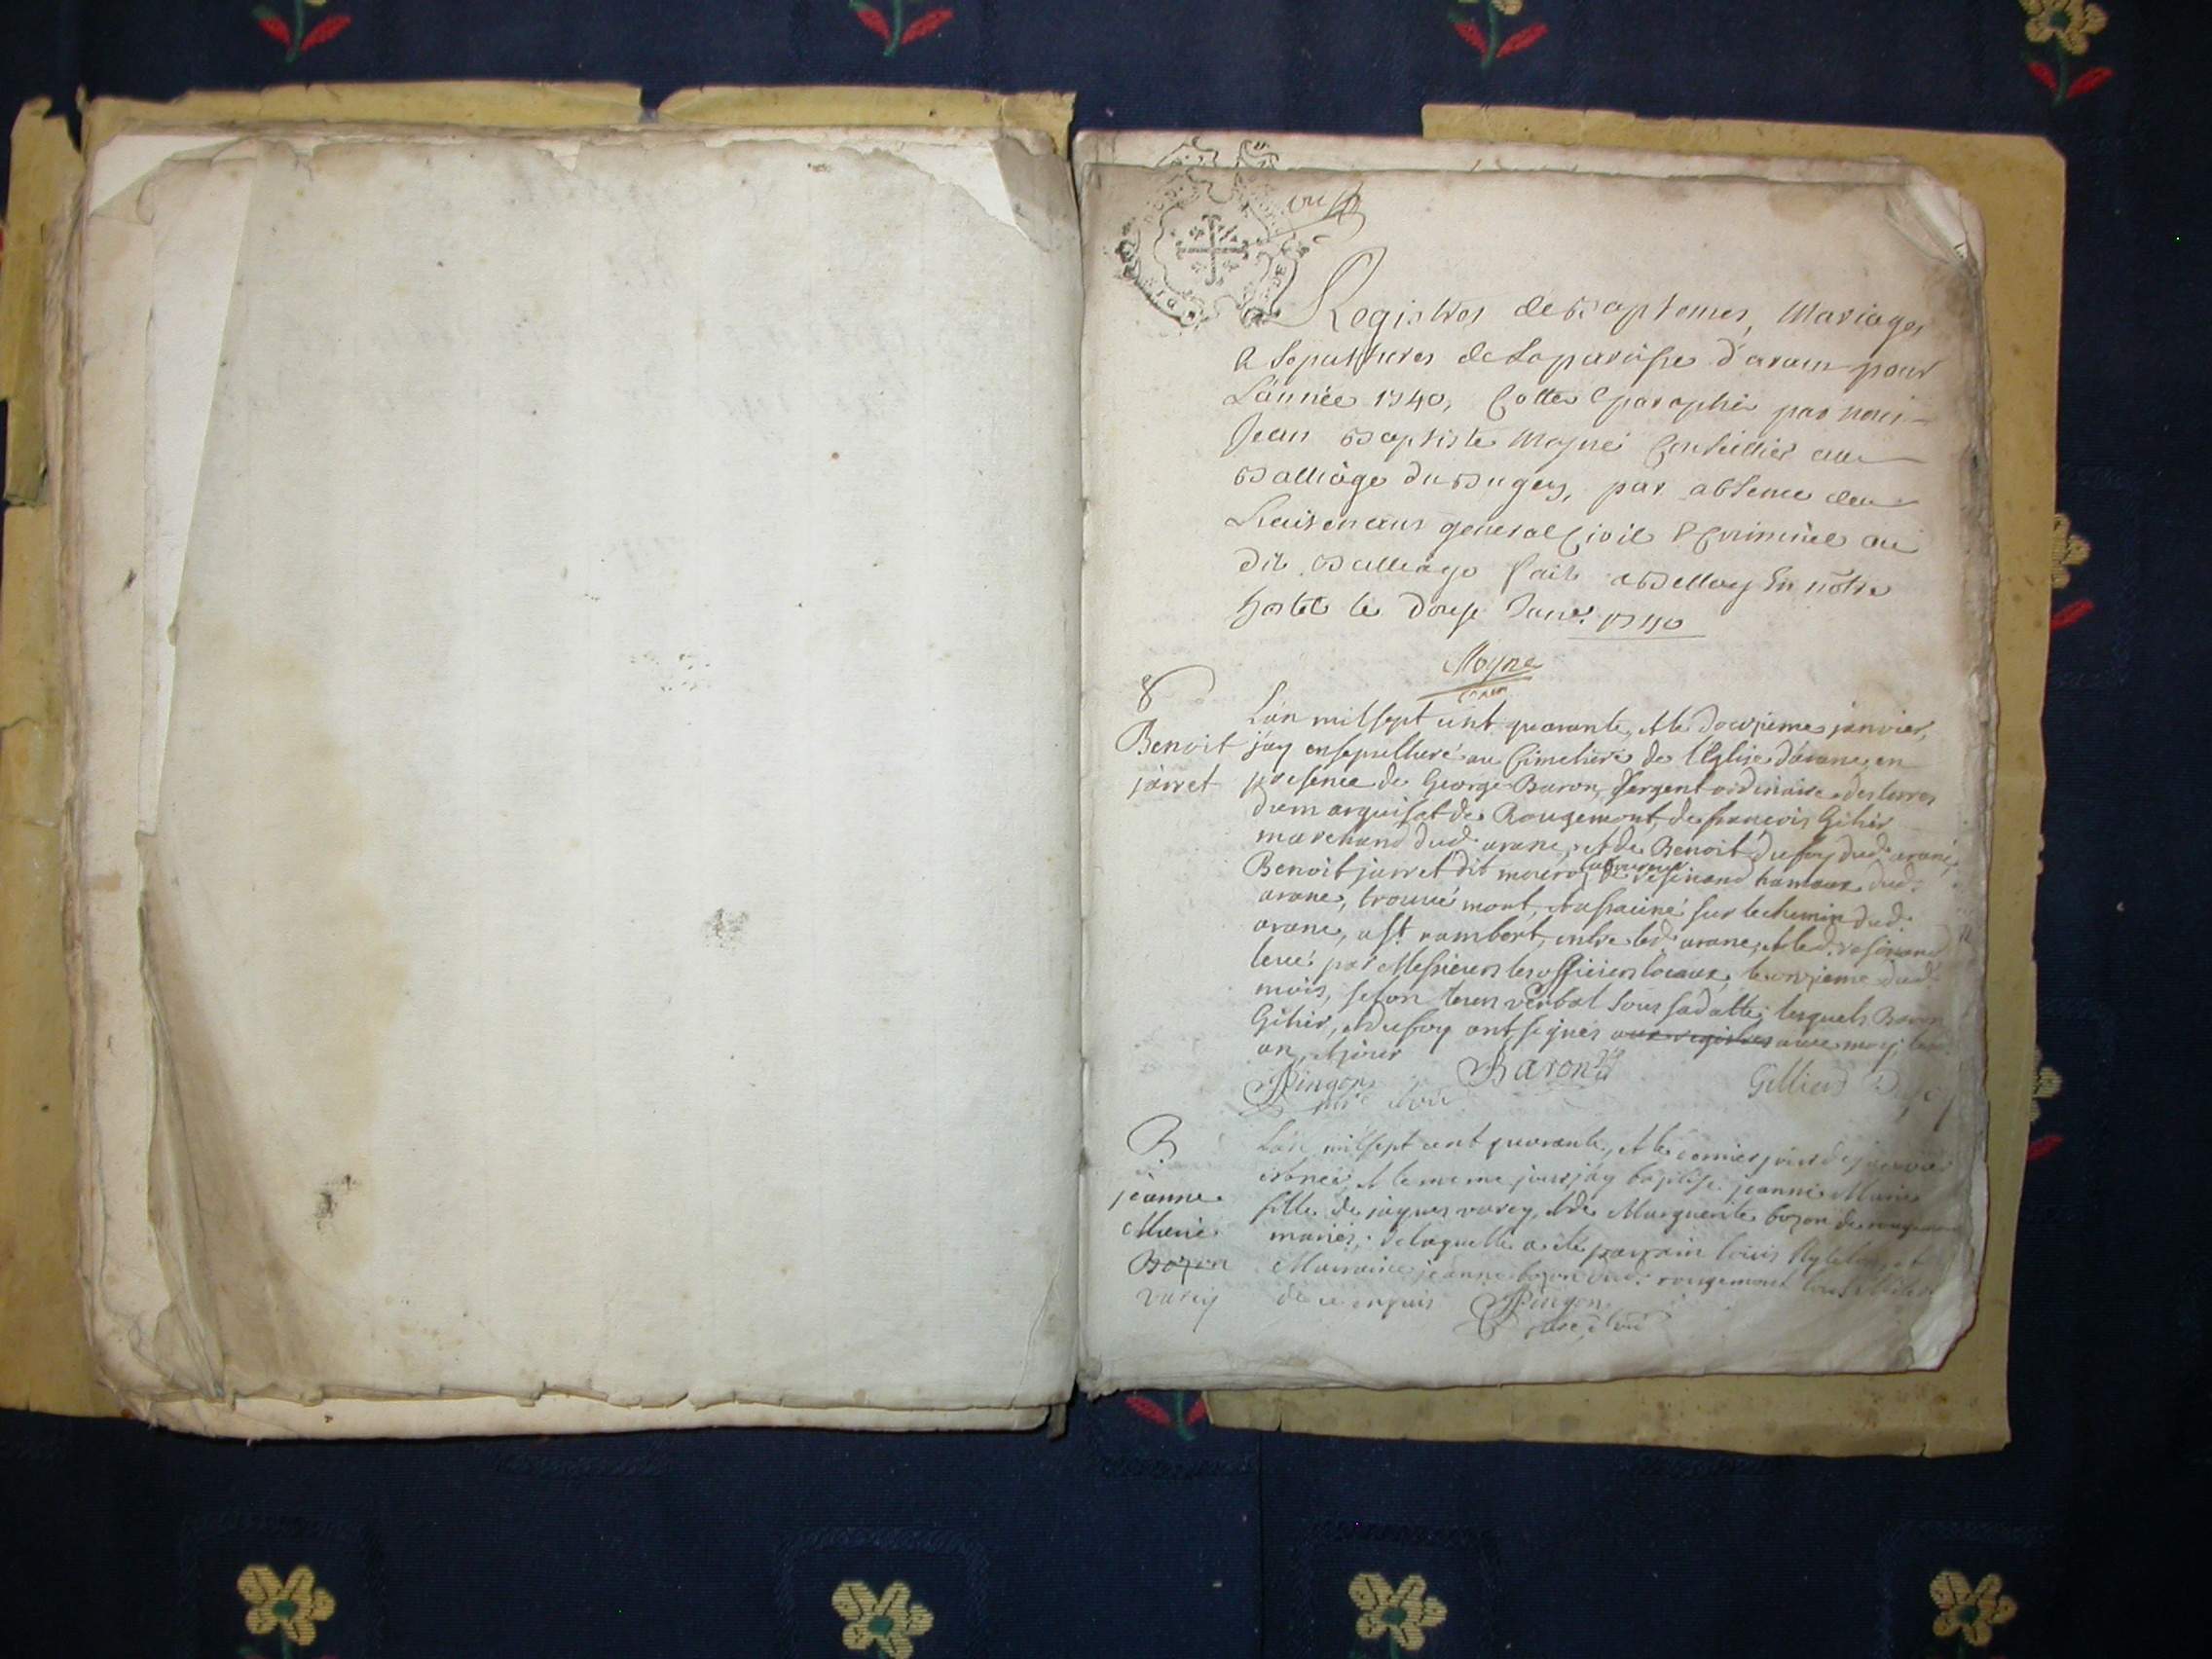 Registres de Baptemes, Mariages
& Sepultures de La paroisse d'aran pour
L'année 1740, Cottée & paraphée par nous
Jean Baptiste Moyne Conseillier au
Balliage du Bugey, par absence du
Lieutenant general Civil & Criminel au
dit Balliage fait a Belley En nôtre
hostel le douze Janv. 1740
Moyne
Benoit
jarret
L'an mil sept cent quarante, et le douzieme janvier,
j'ay ensepulturé au Cimetiere de l'Eglise d'arane, en
presence de George Baron, sergent ordinaire des terres
du marquisat de Rougemont, de françois Gilier
marchand dud. arane, et de Benoit Dufoy dud. arane,
Benoit jarret dit laboureur de resinand hameau dud.
arane, trouvé mort, et assasiné sur le chemin dud.
arane, a st. rambert, entre led. arane, et led. resinand
levé par Messieurs les officiers locaux, le onzieme dud.
mois, selon leur verbal sous sa datte; lesquels Baron
Gilier, et dufoy ont signés aux registres avec moy, led.
an, et jour
Pingon
curé
Baron
Gillier
B
jeanne
Marie
Bozon
varey
L'an mil sept cent quarante, et le dernier jour de janvier
est née, et le meme jour j'ay baptisé jeanne Marie
fille de jaques varey, et de Marguerite bozon de rougemont
mariés; de laquelle a eté parrain louis et
Marraine jeanne bozon dud. rougemont
de ce enquis
Pingon
curé